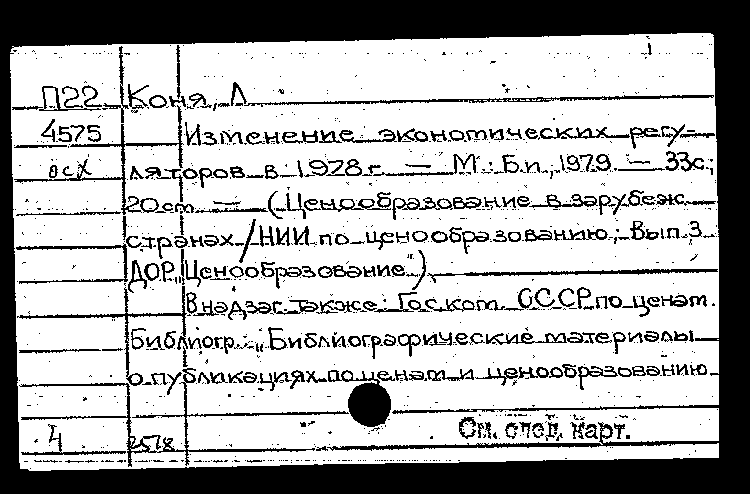 П22 Коня, Л
4575 Изменение экономических регу-
осх ляторов в 1978 г. — М.: Б.и., 1979. — 33с.;
20см. — (Ценообразование в зарубеж.
странах / НИИ по ценообразованию; Вып.3
ДОР „Ценообразование").
В надзаг. также: Гос. ком. СССР по ценам.
Библиогр.: „Библиографические материалы
о публикациях по ценам и ценообразованию
4 2518
См. след. карт.